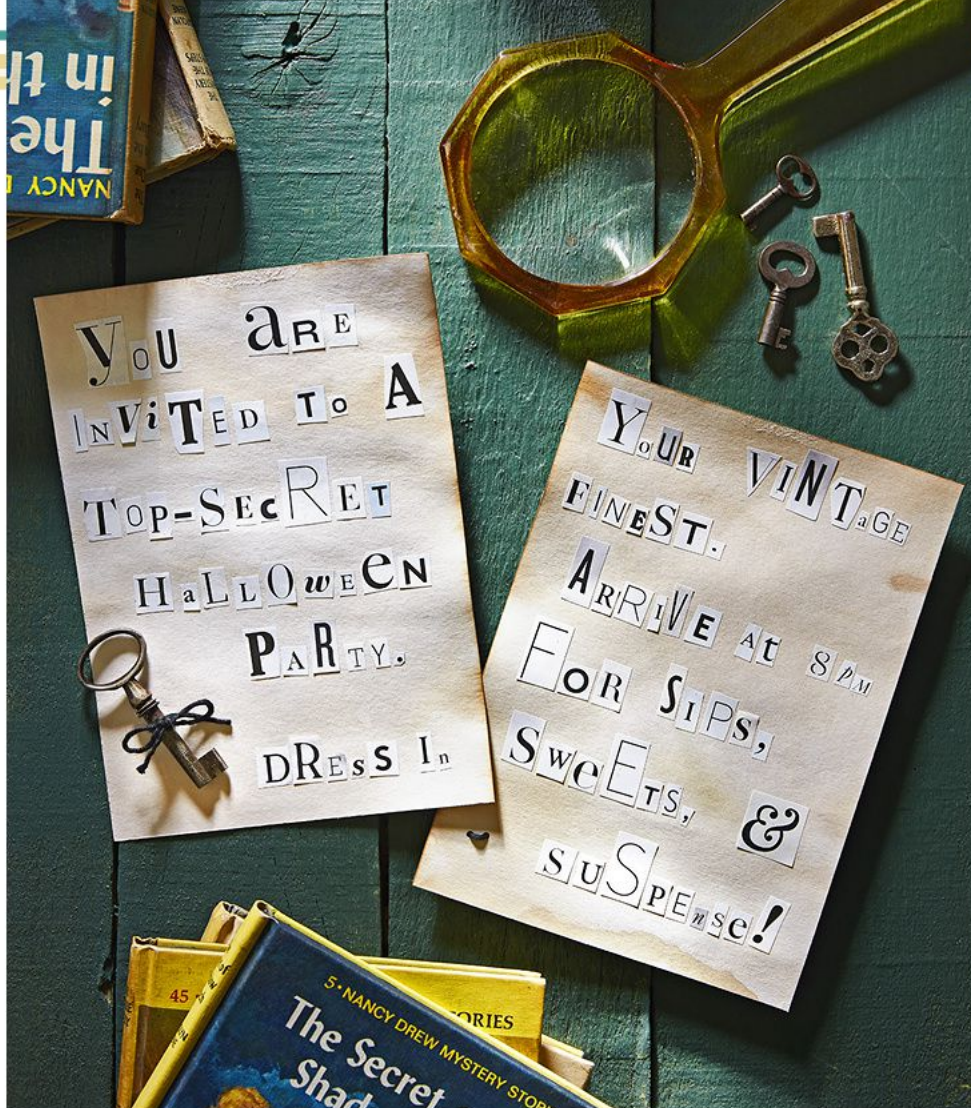 NANCY
The
in th
THE
MYSTERY
You are
Invited to a
Top-Secret
Halloween
Party.
Dress In
Your Vintage
Finest.
Arrive at 8pm
For Sips,
Sweets, &
Suspense!
45
ORIES
5 • NANCY DREW MYSTERY STOR
The Secret
Shad